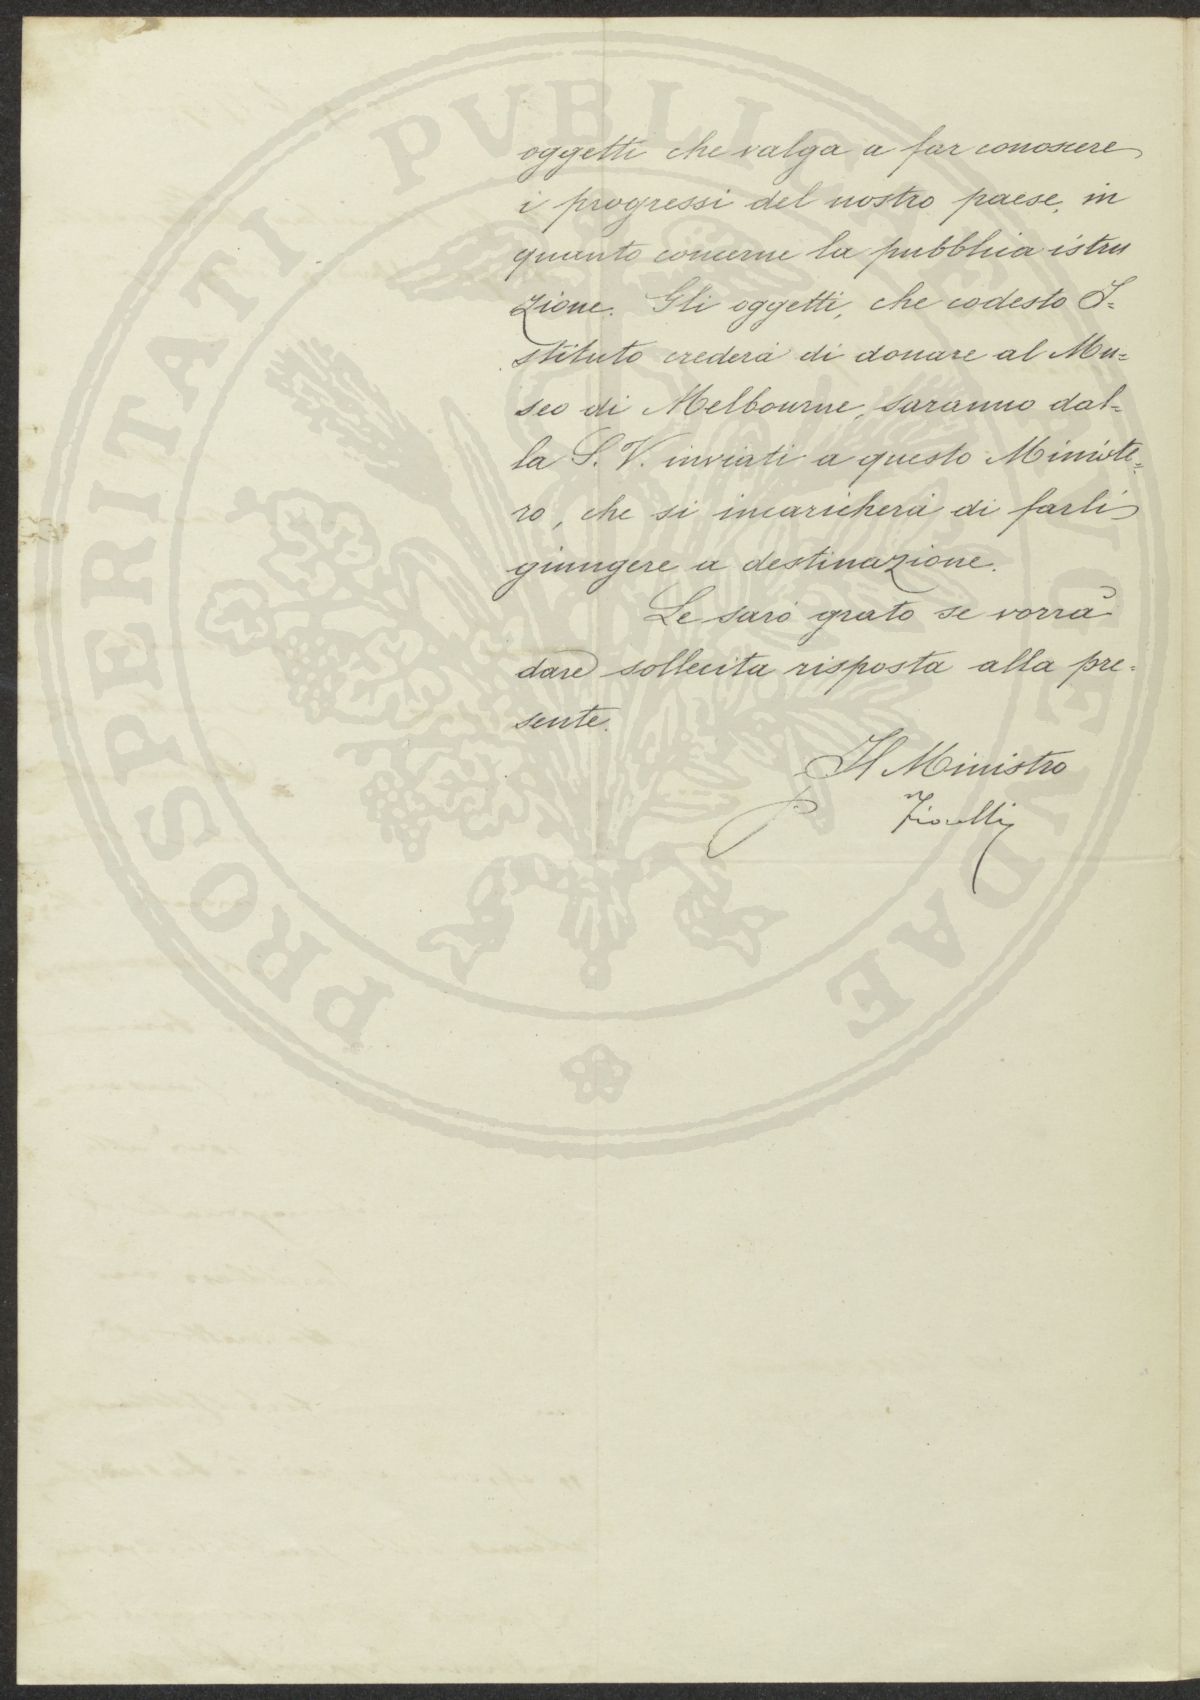 oggetti che valga a far conoscere
i progressi del nostro paese, in
quanto concerne la pubblica istru
zione. Gli oggetti, che codesto I=
stituto crederà di donare al Mu=
seo di Melbourne, saranno dal=
la S. V. inviati a questo Ministe=
ro, che si incaricherà di farli
giungere a destinazione.
Le sarò grato se vorrà
dare sollecita risposta alla pre=
sente.
Il Ministro
P Fiorelli
PROSPERITATI PVBLICAE AVGENDAE